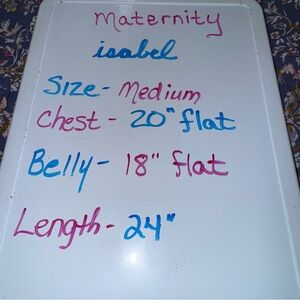 Maternity
isabel
Size - Medium
Chest - 20" flat
Belly - 18" flat
Length - 24"